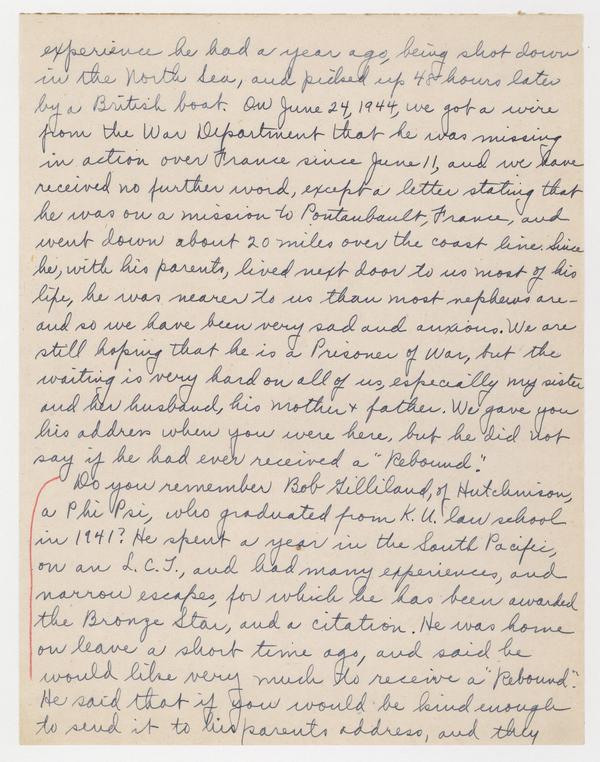 experience he had a year ago, being shot down
in the North Sea, and picked up 48 hours later
by a British boat. On June 24, 1944, we got a wire
from the War Department that he was missing
in action over France since June 11, and we have
received no further word, except a letter stating that
he was on a mission to Pontaubault, France, and
went down about 20 miles over the coast line. Since
he, with his parents, lived next door to us most of his
life, he was nearer to us than most nephews are -
and so we have been very sad and anxious. We are
still hoping that he is a Prisoner of War, but the
waiting is very hard on all of us, especially my sister
and her husband, his mother & father. We gave you
his address when you were here, but he did not
say if he had ever received a "Rebound."
Do you remember Bob Gilliland, of Hutchinson,
a Phi Psi, who graduated from K.U. law school
in 1941? He spent a year in the South Pacific,
on an L.C.T., and had many experiences, and
narrow escapes, for which he has been awarded
the Bronze Star, and a citation. He was home
on leave a short time ago, and said he
would like very much to receive a "Rebound".
He said that if you would be kind enough
to send it to his parents address, and they